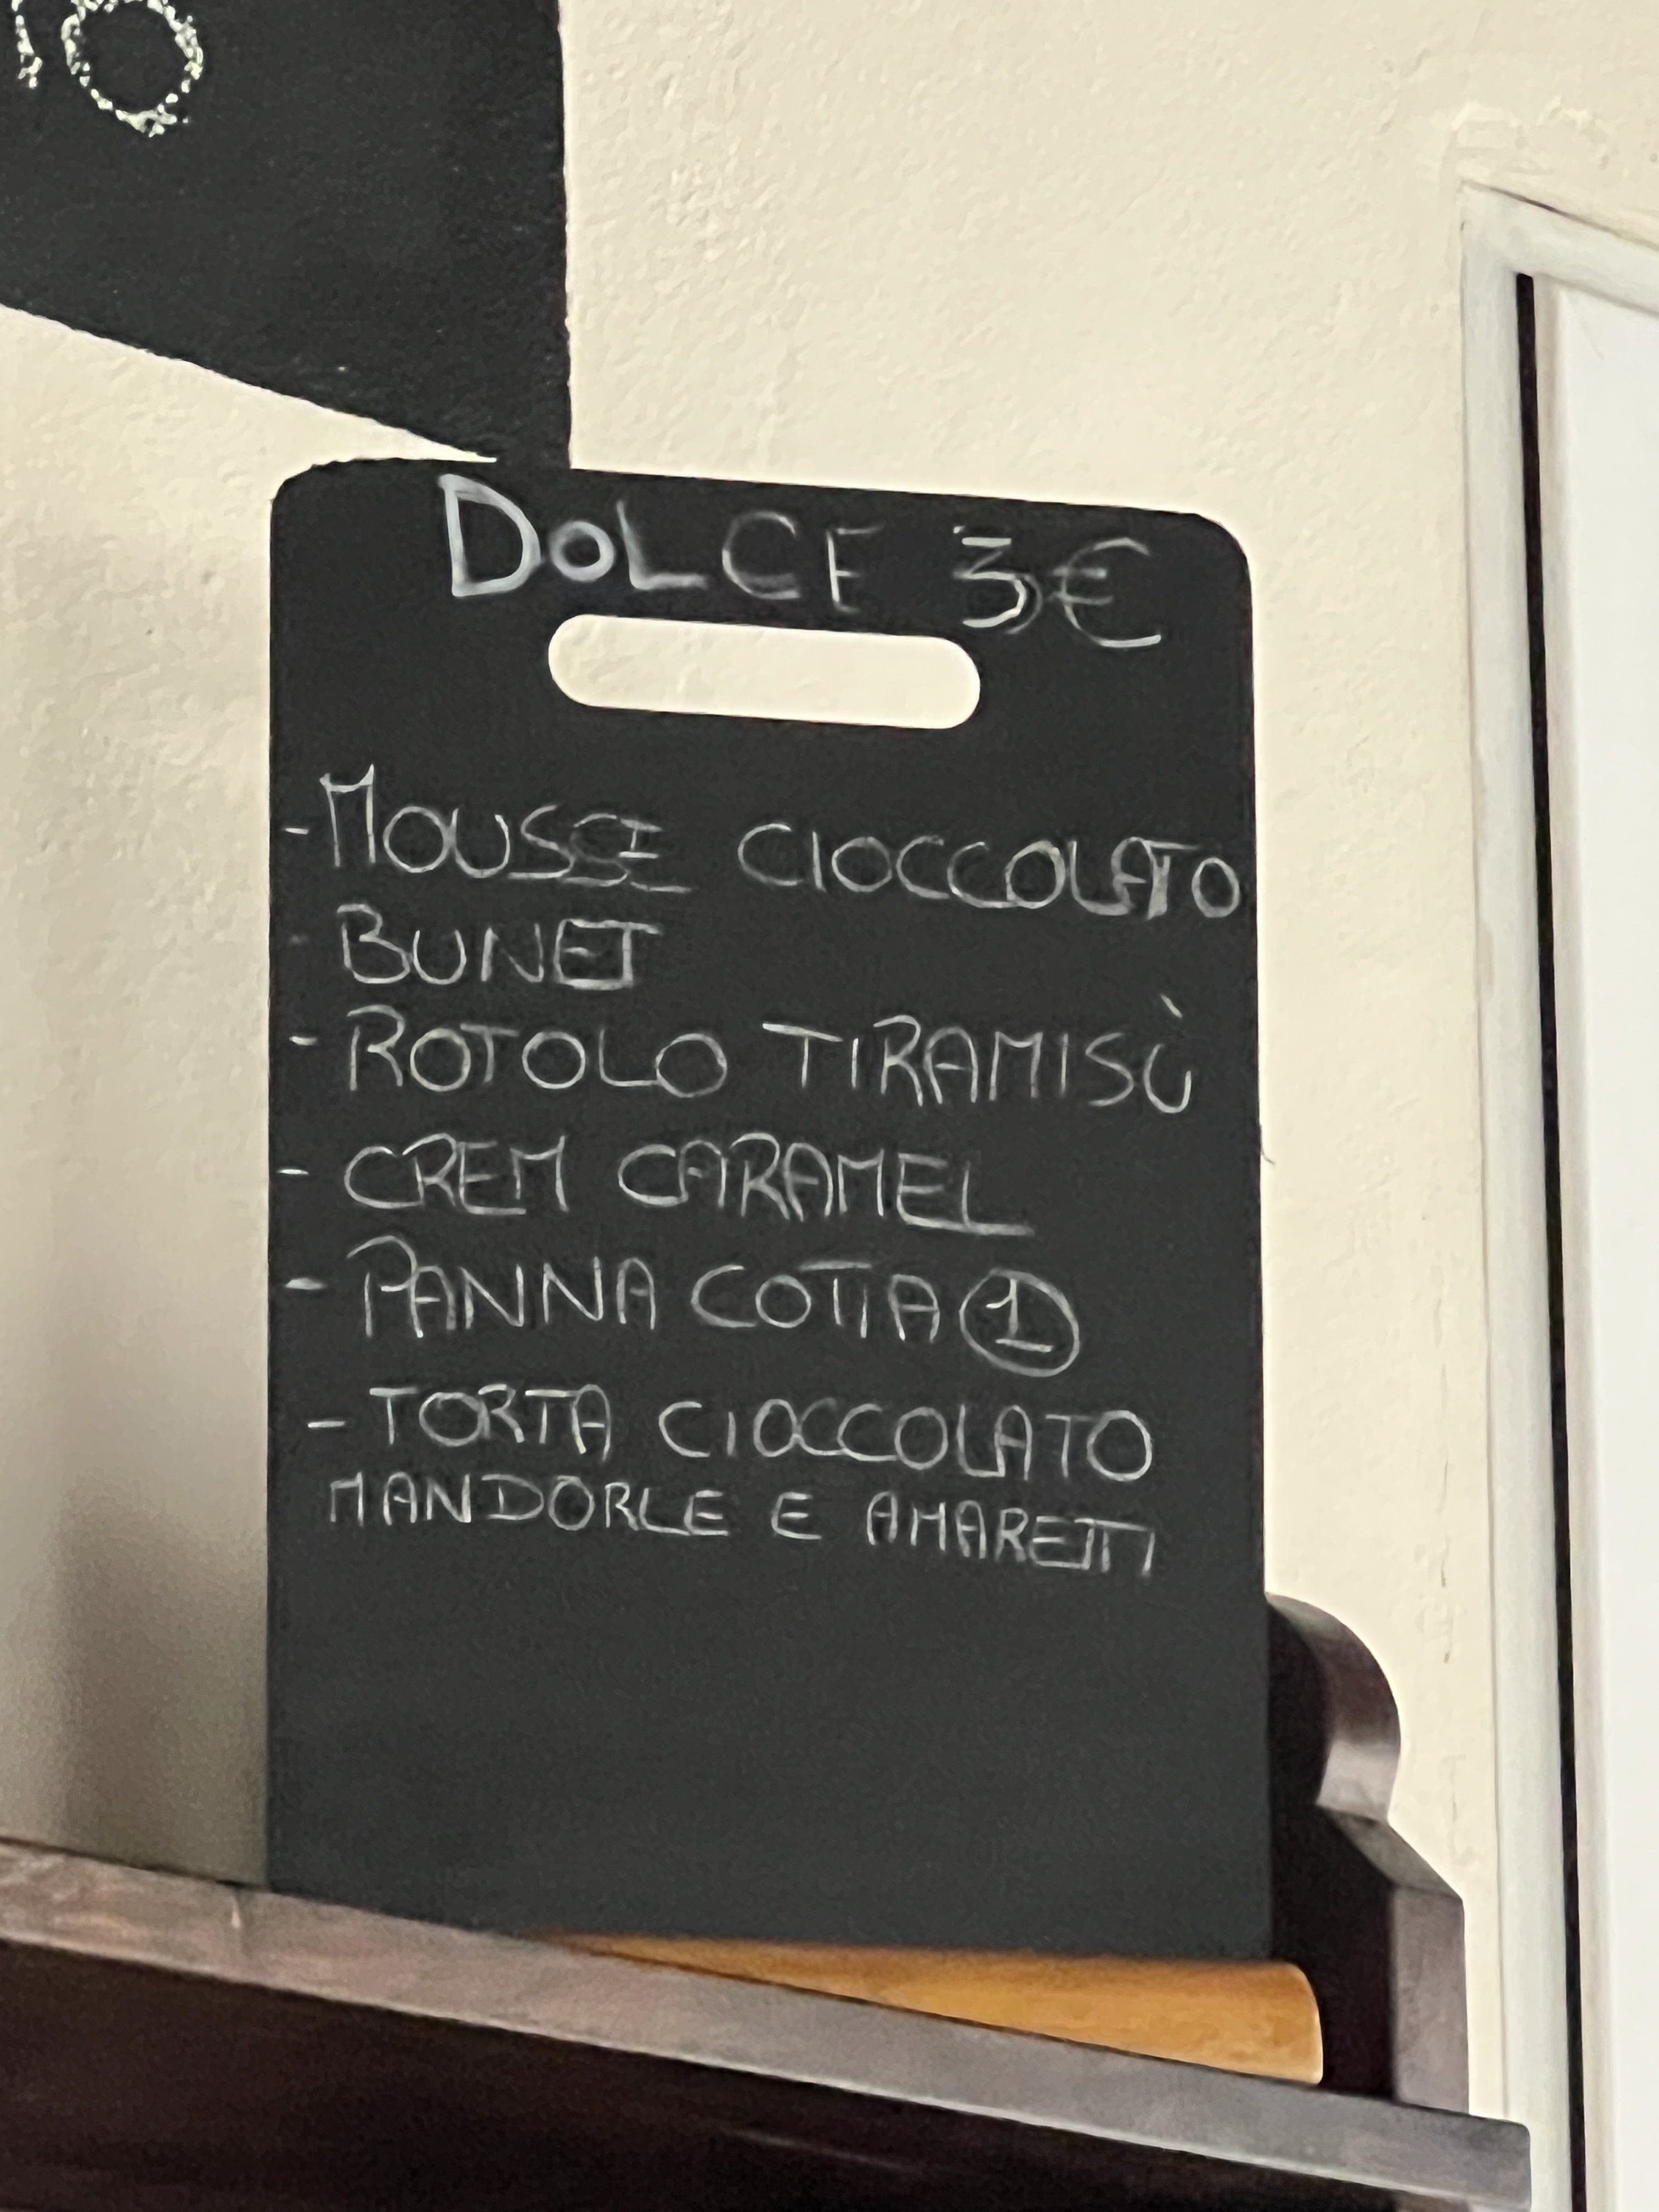 DOLCE 3€
- MOUSSE CIOCCOLATO
- BUNET
- ROTOLO TIRAMISÙ
- CREM CARAMEL
- PANNA COTTA ①
- TORTA CIOCCOLATO
MANDORLE E AMARETTI